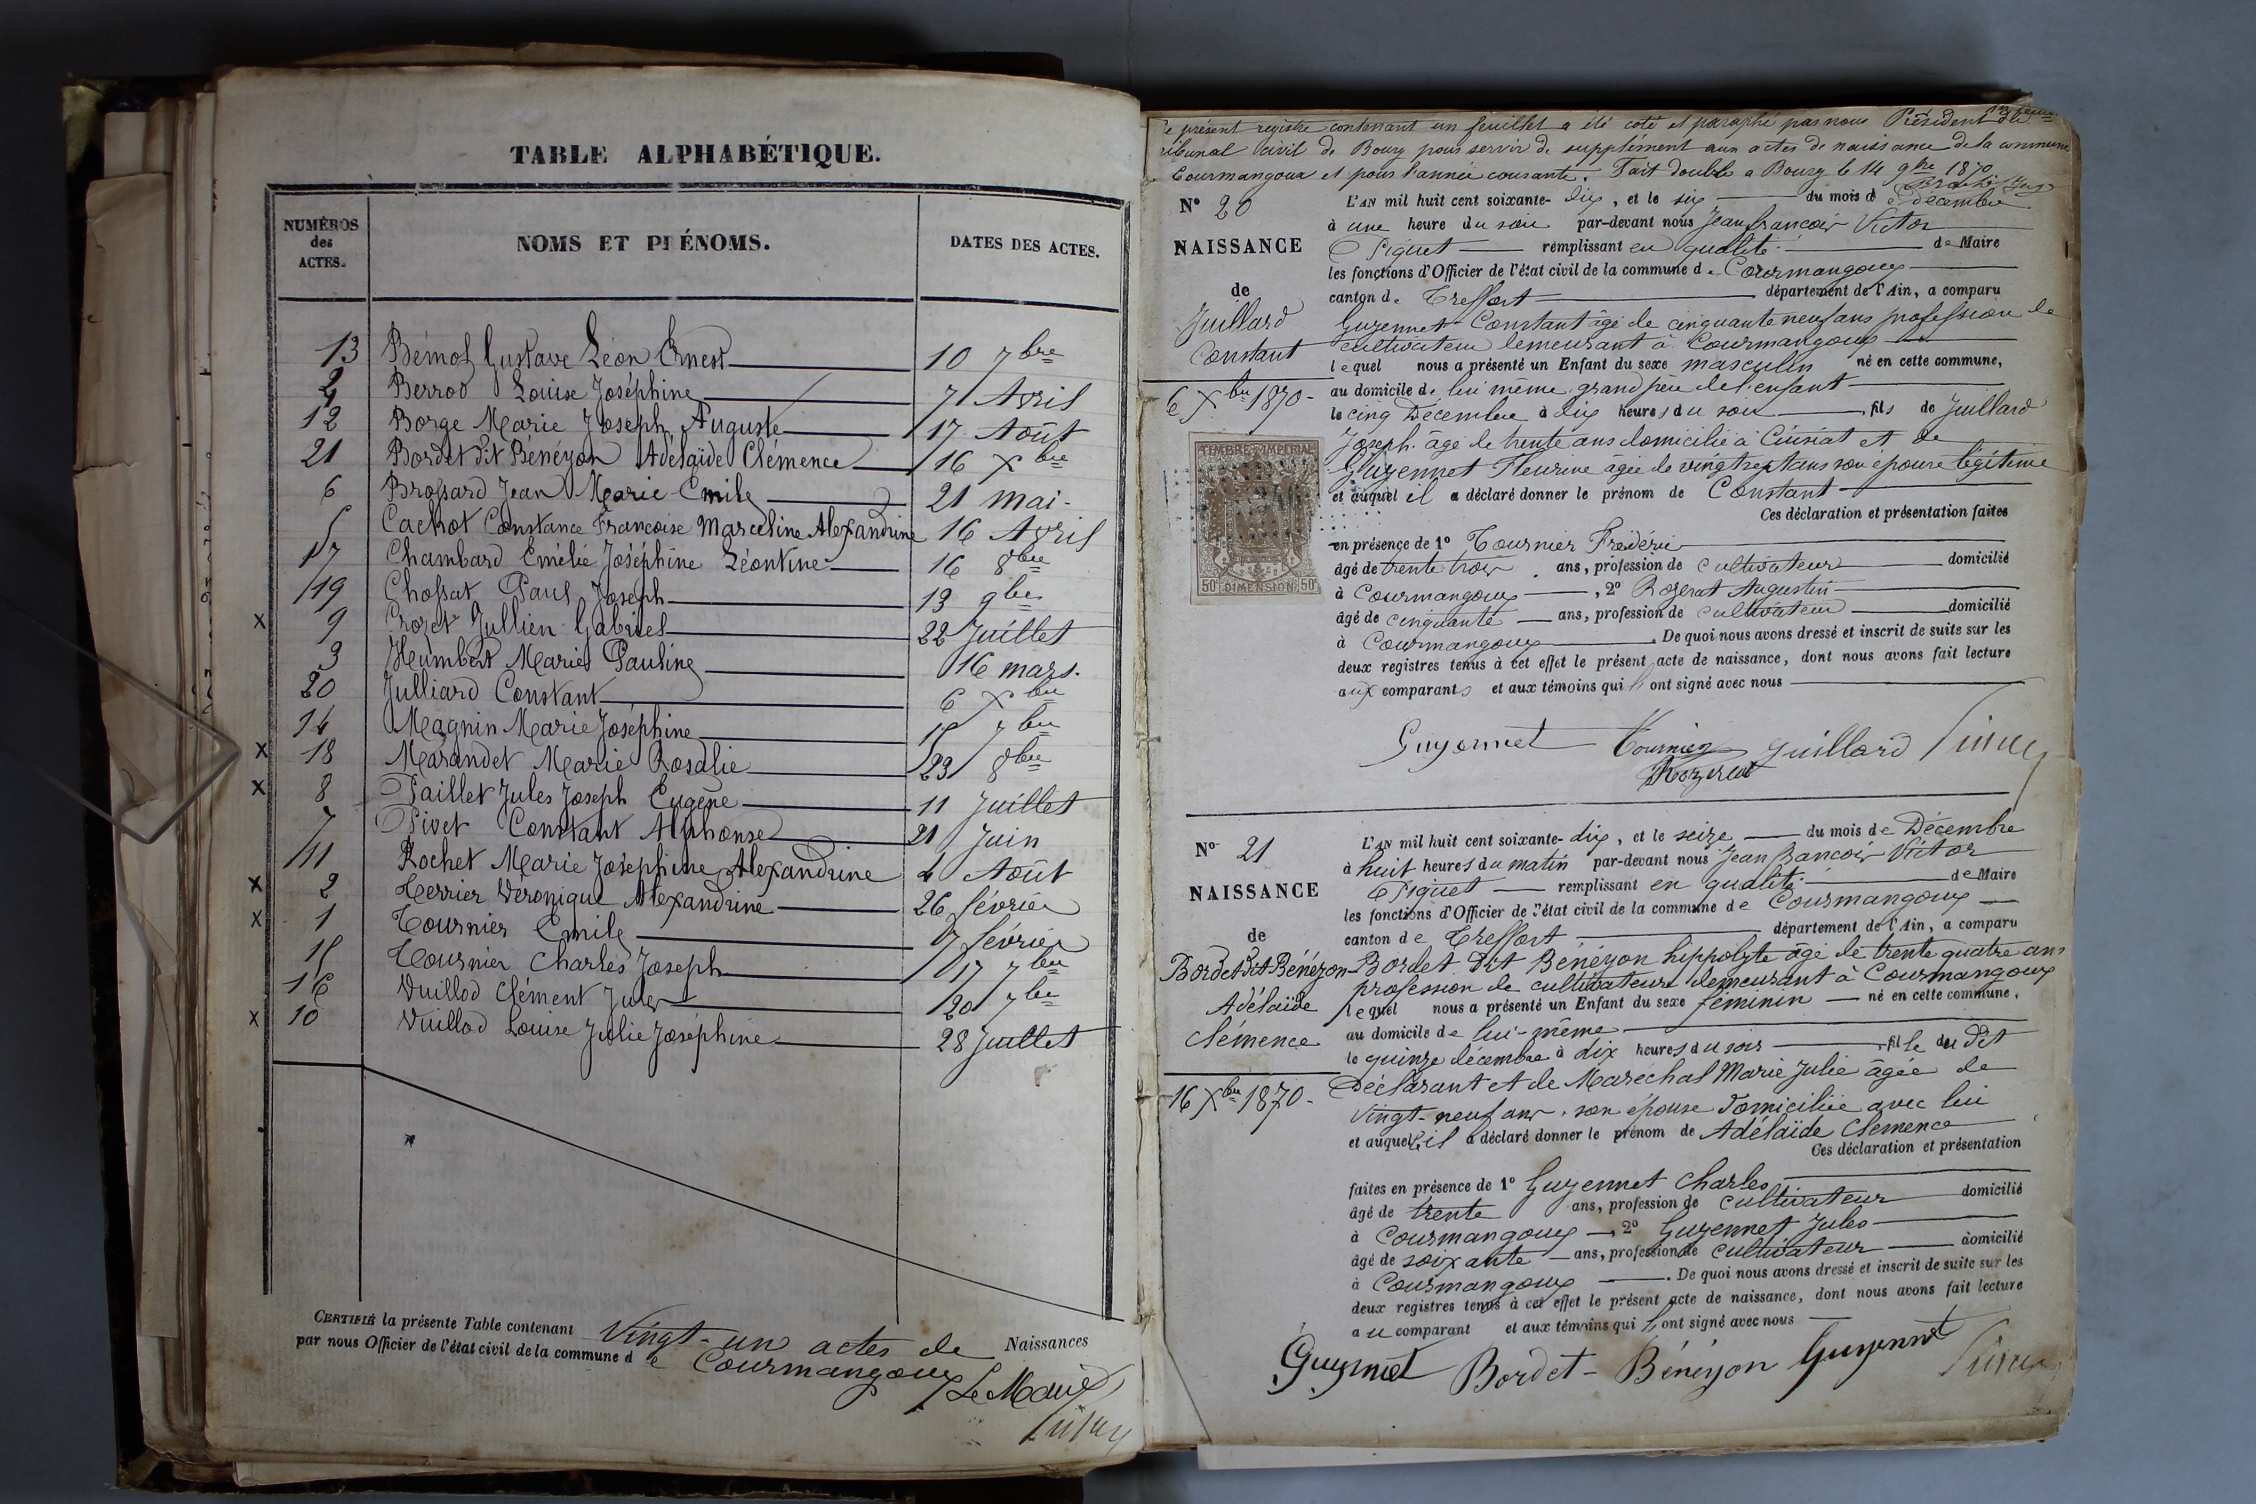 TABLE ALPHABÉTIQUE.
NUMÉROS des ACTES.
NOMS ET PRÉNOMS.
DATES DES ACTES.
13 Bémol Gustave Léon Ernest 10 7bre
Berrod Louise Joséphine 7 Avril
12 Borge Marie Joseph Auguste 17 Août
21 Bordet dit Bénézon Adélaïde Clémence 16 Xbre
6 Brossard Jean Marie Emile 21 mai
5 Cachot Constance Françoise Marceline Alexandrine 16 Avril
17 Chambard Emélie Joséphine Léontine 16 8bre
19 Chossat Paul Joseph 13 9bre
x 9 Crozet Jullien Gabriel 22 Juillet
3 Humbert Marie Pauline 16 mars.
20 Julliard Constant 6 Xbre
14 Magnin Marie Joséphine 15 7bre
x 18 Marandet Marie Rosalie 23 8bre
x 8 Paillet Jules Joseph Eugène 11 Juillet
7 Pivet Constant Alphonse 21 Juin
11 Rochet Marie Joséphine Alexandrine 4 Août
x 2 Terrier Véronique Alexandrine 26 février
x 1 Tournier Emile 7 février
15 Tournier Charles Joseph 17 7bre
16 Vuillod Clément Jules 20 7bre
x 10 Vuillod Louise Julie Joséphine 28 Juillet
CERTIFIÉ la présente Table contenant Vingt-un actes de Naissances
par nous Officier de l'état civil de la commune de Courmangoux
Le Maire
Le présent registre contenant un feuillet a été coté et paraphé par nous Président du
tribunal civil de Bourg pour servir de supplément aux actes de naissance de la commune
Courmangoux et pour l'année courante. Fait double a Bourg le 14 9bre 1870
N° 20
NAISSANCE
de
Juillard
Constant
6 Xbre 1870-
TIMBRE IMPÉRIAL
50c DIMENSION 50c
L'AN mil huit cent soixante-dix, et le six du mois de décembre
à une heure du soir par-devant nous Jean françois Victor
Piguet remplissant en qualité de Maire
les fonctions d'Officier de l'état civil de la commune de Courmangoux
canton de Treffort département de l'Ain, a comparu
Guyennet Constant âgé de cinquante neuf ans profession de
cultivateur demeurant à Courmangoux
lequel nous a présenté un Enfant du sexe masculin né en cette commune,
au domicile de lui même grand père de l'enfant
le cinq Décembre à dix heures du soir, fils de Juillard
Joseph âgé de trente ans domicilié à Cuisiat et de
Guyennet Fleurine âgée de vingt sept ans son épouse légitime
et auquel il a déclaré donner le prénom de Constant
Ces déclaration et présentation faites
en présence de 1° Tournier Fréderic
âgé de trente trois ans, profession de cultivateur domicilié
à Courmangoux, 2° Rozerat Augustin
âgé de cinquante ans, profession de cultivateur domicilié
à Courmangoux. De quoi nous avons dressé et inscrit de suite sur les
deux registres tenus à cet effet le présent acte de naissance, dont nous avons fait lecture
aux comparants et aux témoins qui ont signé avec nous
Guyennet Tournier Juillard
Rozerat
N° 21
NAISSANCE
de
Bordet dit Bénézon
Adélaïde
Clémence
16 Xbre 1870-
L'AN mil huit cent soixante-dix, et le seize du mois de Décembre
à huit heures du matin par-devant nous Jean françois Victor
Piguet remplissant en qualité de Maire
les fonctions d'Officier de l'état civil de la commune de Courmangoux
canton de Treffort département de l'Ain, a comparu
Bordet dit Bénézon hippolyte âgé de trente quatre ans
profession de cultivateur demeurant à Courmangoux
lequel nous a présenté un Enfant du sexe féminin né en cette commune,
au domicile de lui-même
le quinze décembre à dix heures du soir, fille du dit
Déclarant et de Maréchal Marie Julie âgée de
vingt-neuf ans, son épouse domiciliée avec lui
et auquel il a déclaré donner le prénom de Adélaïde Clémence
Ces déclaration et présentation
faites en présence de 1° Guyennet Charles
âgé de trente ans, profession de cultivateur domicilié
à Courmangoux, 2° Guyennet Jules
âgé de soixante ans, profession de cultivateur domicilié
à Courmangoux. De quoi nous avons dressé et inscrit de suite sur les
deux registres tenus à cet effet le présent acte de naissance, dont nous avons fait lecture
au comparant et aux témoins qui ont signé avec nous
Guyennet Bordet-Bénézon Guyennet